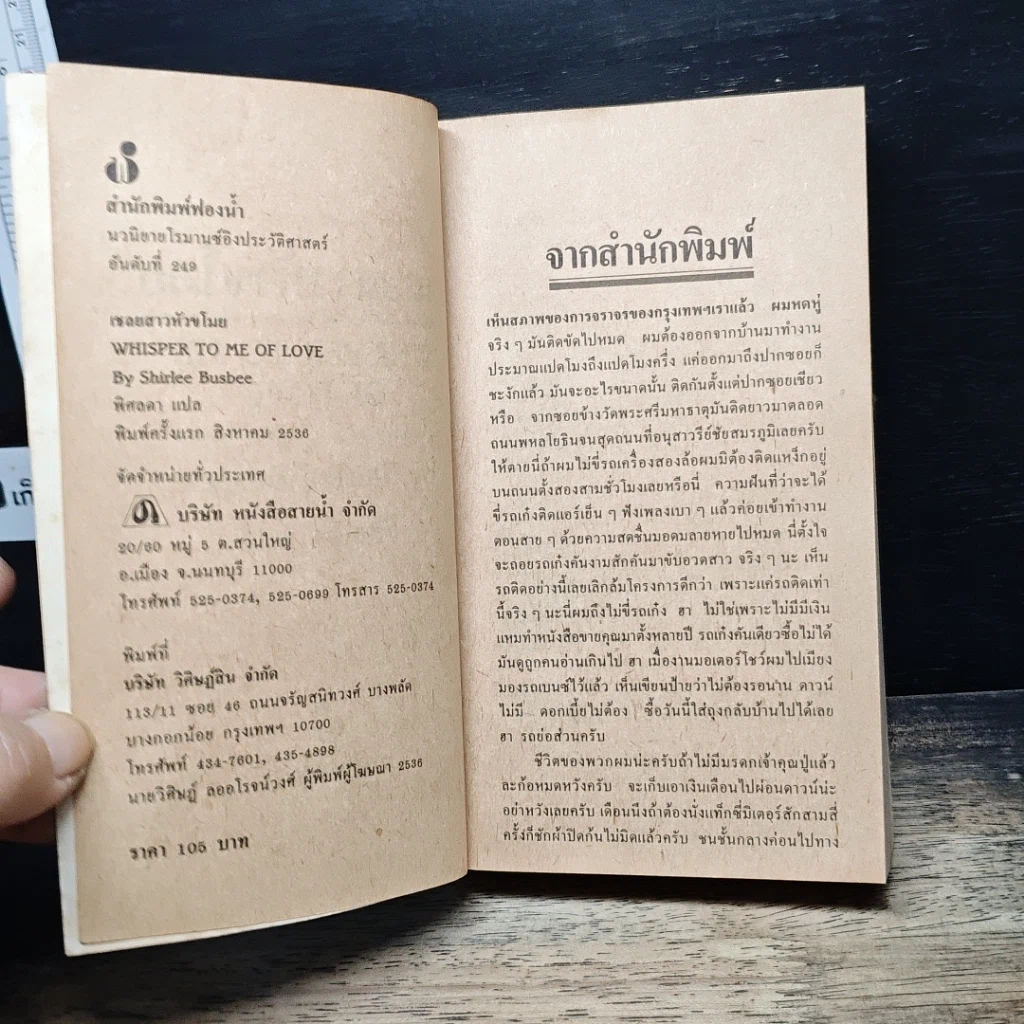 สำนักพิมพ์ฟองน้ำ
นวนิยายโรมานซ์อิงประวัติศาสตร์
อันดับที่ 249
เชลยสาวหัวขโมย
WHISPER TO ME OF LOVE
By Shirlee Busbee
พิศลดา แปล
พิมพ์ครั้งแรก สิงหาคม 2536
จัดจำหน่ายทั่วประเทศ
บริษัท หนังสือสายน้ำ จำกัด
20/60 หมู่ 5 ต.สวนใหญ่
อ.เมือง จ.นนทบุรี 11000
โทรศัพท์ 525-0374, 525-0699 โทรสาร 525-0374
พิมพ์ที่
บริษัท วิศิษฎ์สิน จำกัด
113/11 ซอย 46 ถนนจรัญสนิทวงศ์ บางพลัด
บางกอกน้อย กรุงเทพฯ 10700
โทรศัพท์ 434-7601, 435-4898
นายวิศิษฎ์ ลออโรจน์วงศ์ ผู้พิมพ์ผู้โฆษณา 2536
ราคา 105 บาท
จากสำนักพิมพ์
เห็นสภาพของการจราจรของกรุงเทพฯเราแล้ว ผมหดหู่
จริง ๆ มันติดขัดไปหมด ผมต้องออกจากบ้านมาทำงาน
ประมาณแปดโมงถึงแปดโมงครึ่ง แค่ออกมาถึงปากซอยก็
ชะงักแล้ว มันจะอะไรขนาดนั้น ติดกันตั้งแต่ปากซอยเชียว
หรือ จากซอยข้างวัดพระศรีมหาธาตุมันติดยาวมาตลอด
ถนนพหลโยธินจนสุดถนนที่อนุสาวรีย์ชัยสมรภูมิเลยครับ
ให้ตายนี่ถ้าผมไม่ขี่รถเครื่องสองล้อผมมิต้องติดแหง็กอยู่
บนถนนตั้งสองสามชั่วโมงเลยหรือนี่ ความฝันที่ว่าจะได้
ขี่รถเก๋งติดแอร์เย็น ๆ ฟังเพลงเบา ๆ แล้วค่อยเข้าทำงาน
ตอนสาย ๆ ด้วยความสดชื่นมอดมลายหายไปหมด นี่ตั้งใจ
จะถอยรถเก๋งคันงามสักคันมาขับอวดสาว จริง ๆ นะ เห็น
รถติดอย่างนี้เลยเลิกล้มโครงการดีกว่า เพราะแค่รถติดเท่า
นี้จริง ๆ นะนี่ผมถึงไม่ขี่รถเก๋ง ฮา ไม่ใช่เพราะไม่มีมีเงิน
แหมทำหนังสือขายคุณมาตั้งหลายปี รถเก๋งคันเดียวซื้อไม่ได้
มันดูถูกคนอ่านเกินไป ฮา เมื่องานมอเตอร์โชว์ผมไปเมียง
มองรถเบนซ์ไว้แล้ว เห็นเขียนป้ายว่าไม่ต้องรอนาน ดาวน์
ไม่มี ดอกเบี้ยไม่ต้อง ซื้อวันนี้ใส่ถุงกลับบ้านไปได้เลย
ฮา รถย่อส่วนครับ
ชีวิตของพวกผมน่ะครับถ้าไม่มีมรดกเจ้าคุณปู่แล้ว
ละก้อหมดหวังครับ จะเก็บเอาเงินเดือนไปผ่อนดาวน์น่ะ
อย่าหวังเลยครับ เดือนนึงถ้าต้องนั่งแท็กซี่มิเตอร์สักสามสี่
ครั้งก็ชักผ้าปิดก้นไม่มิดแล้วครับ ชนชั้นกลางค่อนไปทาง